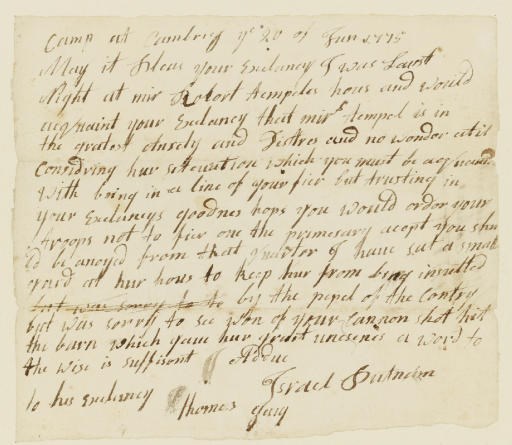 Camp at Cambrig ye 20 of Jun 1775
May it Pleas your Exelancy I was Laost
Night at mir Robort tempeles hous and would
acquaint your Exelancy that mirs tempel is in
the gratest anxiety and Distres and no wonder at it
Considring hur setuation which you must be acquainted
with being in a line of your fier but trusting in
your Exelancys goodnes hops you would order your
troops not to fier one the primesary acept you shu
ld be anoyed from that Quarter I have sat a small
gard at hur hous to keep hur from being insulted
but was sorry to to by the pepel of the Contry
but was sorry to see won of your Cannon shot hit
the barn which gave hur grat unesenes a word to
the wise is suffisont Addue
Israel Putnam
to his Exelancy
thomas gaig